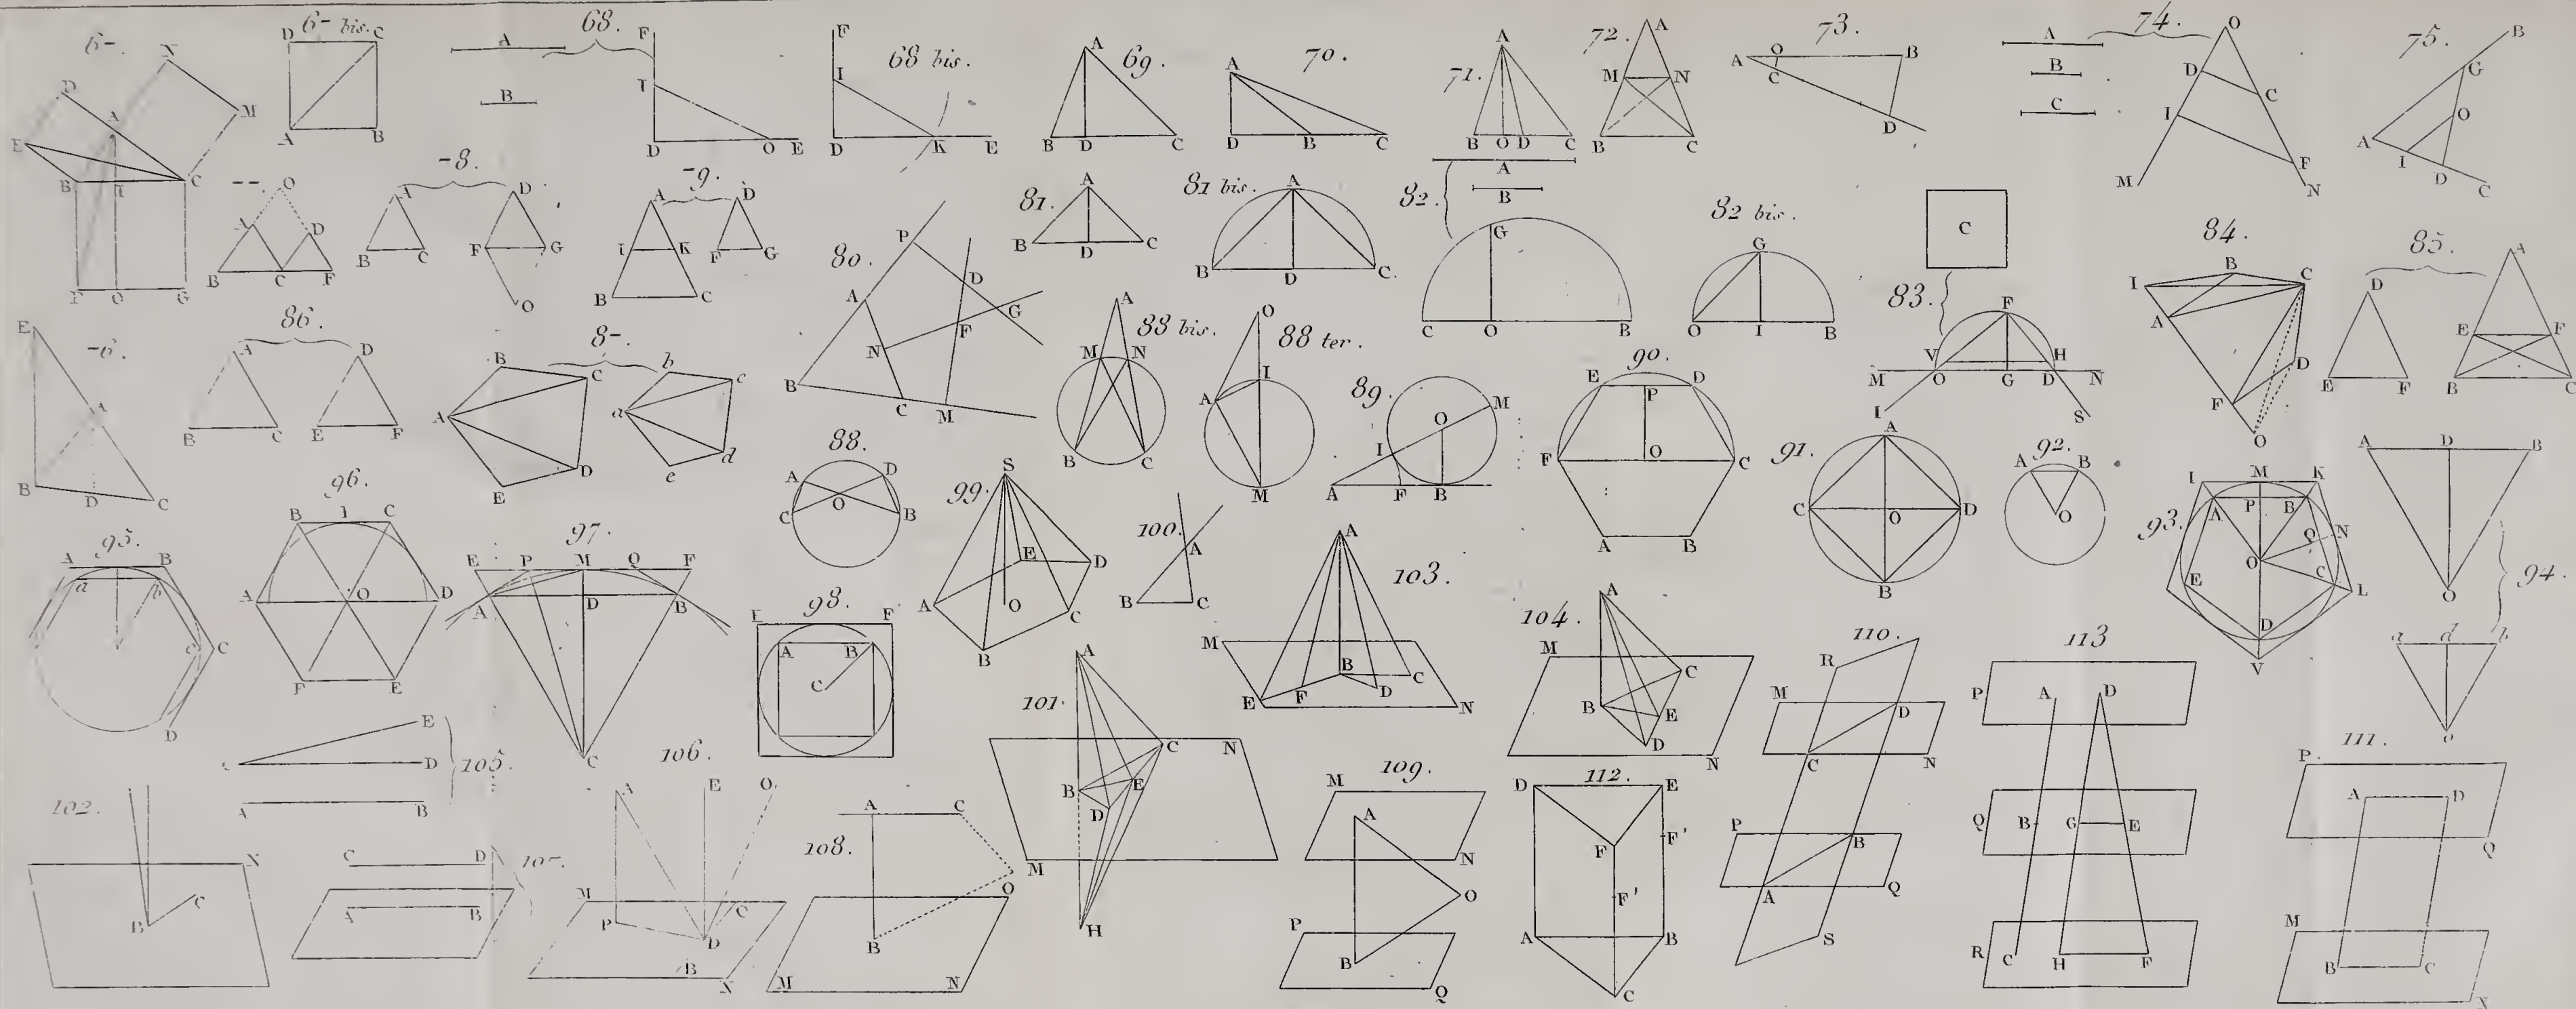 6-.
E D A N M B I C P O G
6- bis.
D C A B
68.
A
B
F I D O E
68 bis.
F I D K E
69.
A B D C
70.
A D B C
71.
A B O D C
72.
A M N B C
73.
A O C B D
74.
A
B
C
O D C I F M N
75.
B G O A I D C
-6.
E A B D C
--.
O A D B C F
-8.
A B C
D F G O
-9.
A I K B C
D F G
80.
P D A G N F B C M
81.
A B D C
81 bis.
A B D C.
82.
A
B
G C O B
82 bis.
G O I B
83.
C
F V H M O G D N I S
84.
B I C A D F O
85.
D E F
A E F B C
86.
A B C
D E F
8-.
B C A D E
b c a d e
88.
A D O C B
88 bis.
A M N B C
88 ter.
O I A M
89.
O M I A F B
90.
E D P F O C A B
91.
A C O D B
92.
A B O
93.
I M K A P B Q N O E C L D V
94.
A D B O
a d b o
95.
A B a b c C D
96.
B I C A O D F E
97.
E P M Q F A D B C
98.
E F A B C
99.
S E D A O C B
100.
A B C
101.
A C N B E D M H
102.
N C B
103.
A M B C D F E N
104.
A M C B E D N
105.
E
C D
A B
106.
A E O M P C D B N
107.
C D
A B
108.
A C O B M N
109.
M A N O P B Q
110.
R M D C N P B A Q S
111.
P A D Q M B C N
112.
D E F F' F' A B C
113
P A D Q B G E R C H F